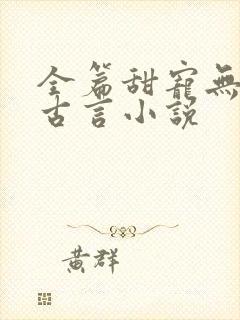 全篇甜寵無
古言小説
黄群